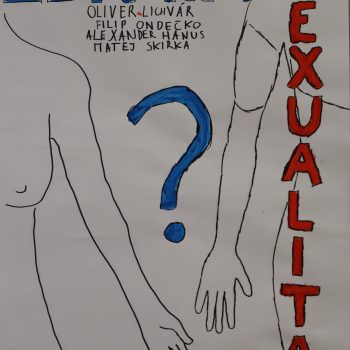 OLIVER LICHVÁR
FILIP ONDEČKO
ALEXANDER HANUS
MATEJ SKIRKA
?
EXUALITA